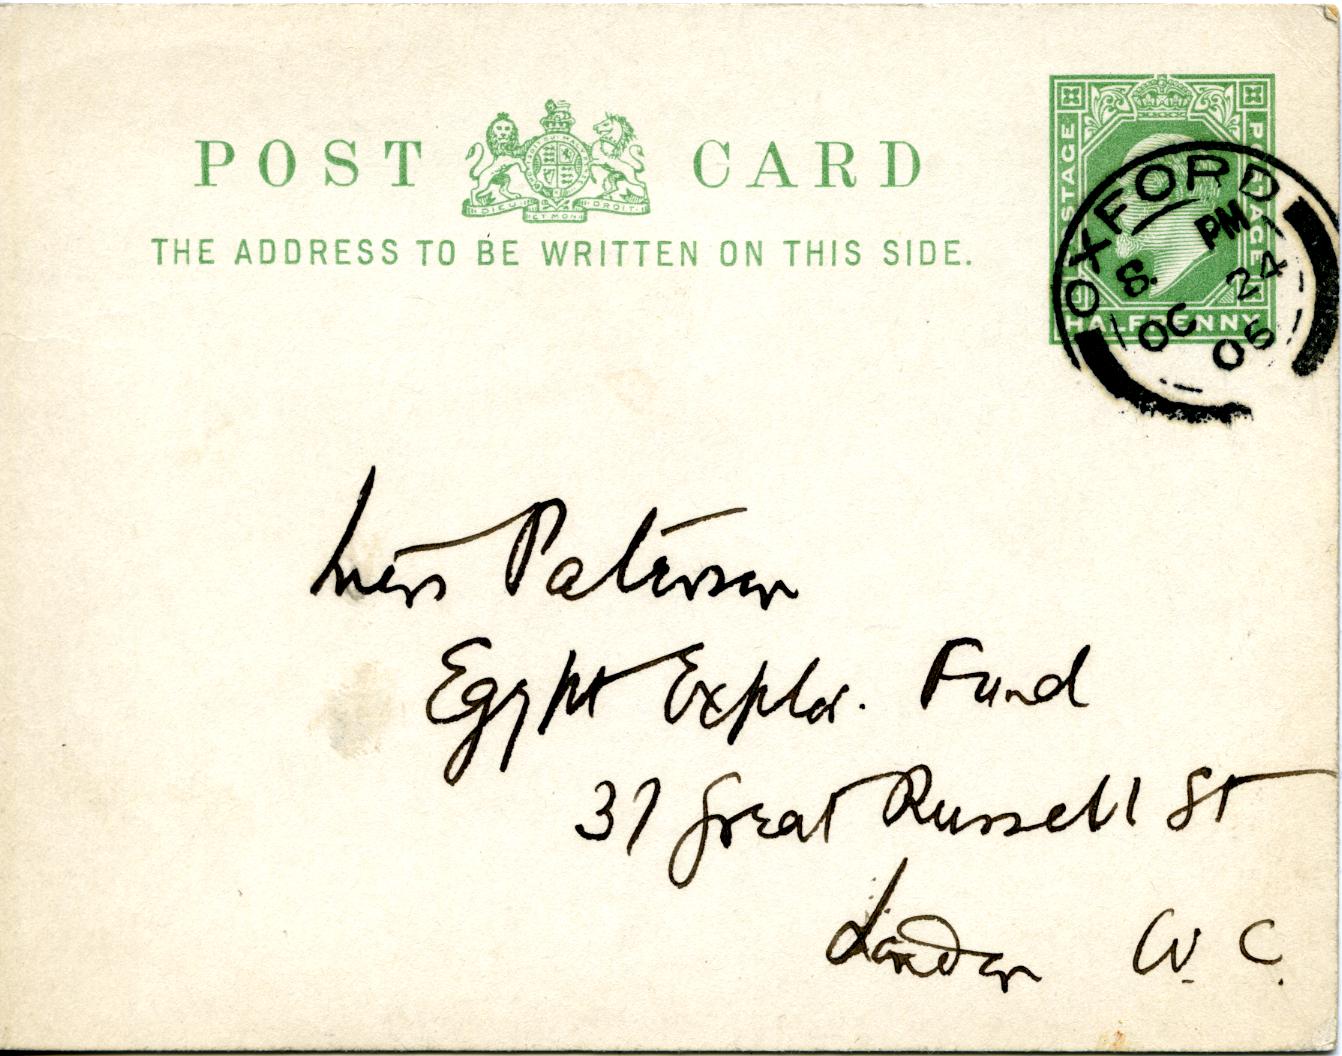 POST CARD
DIEU ET MON DROIT
THE ADDRESS TO BE WRITTEN ON THIS SIDE.
POSTAGE POSTAGE
HALFPENNY
OXFORD
8. PM
OC 24
06
Miss Paterson
Egypt Explor. Fund
37 Great Russell St
London W. C.